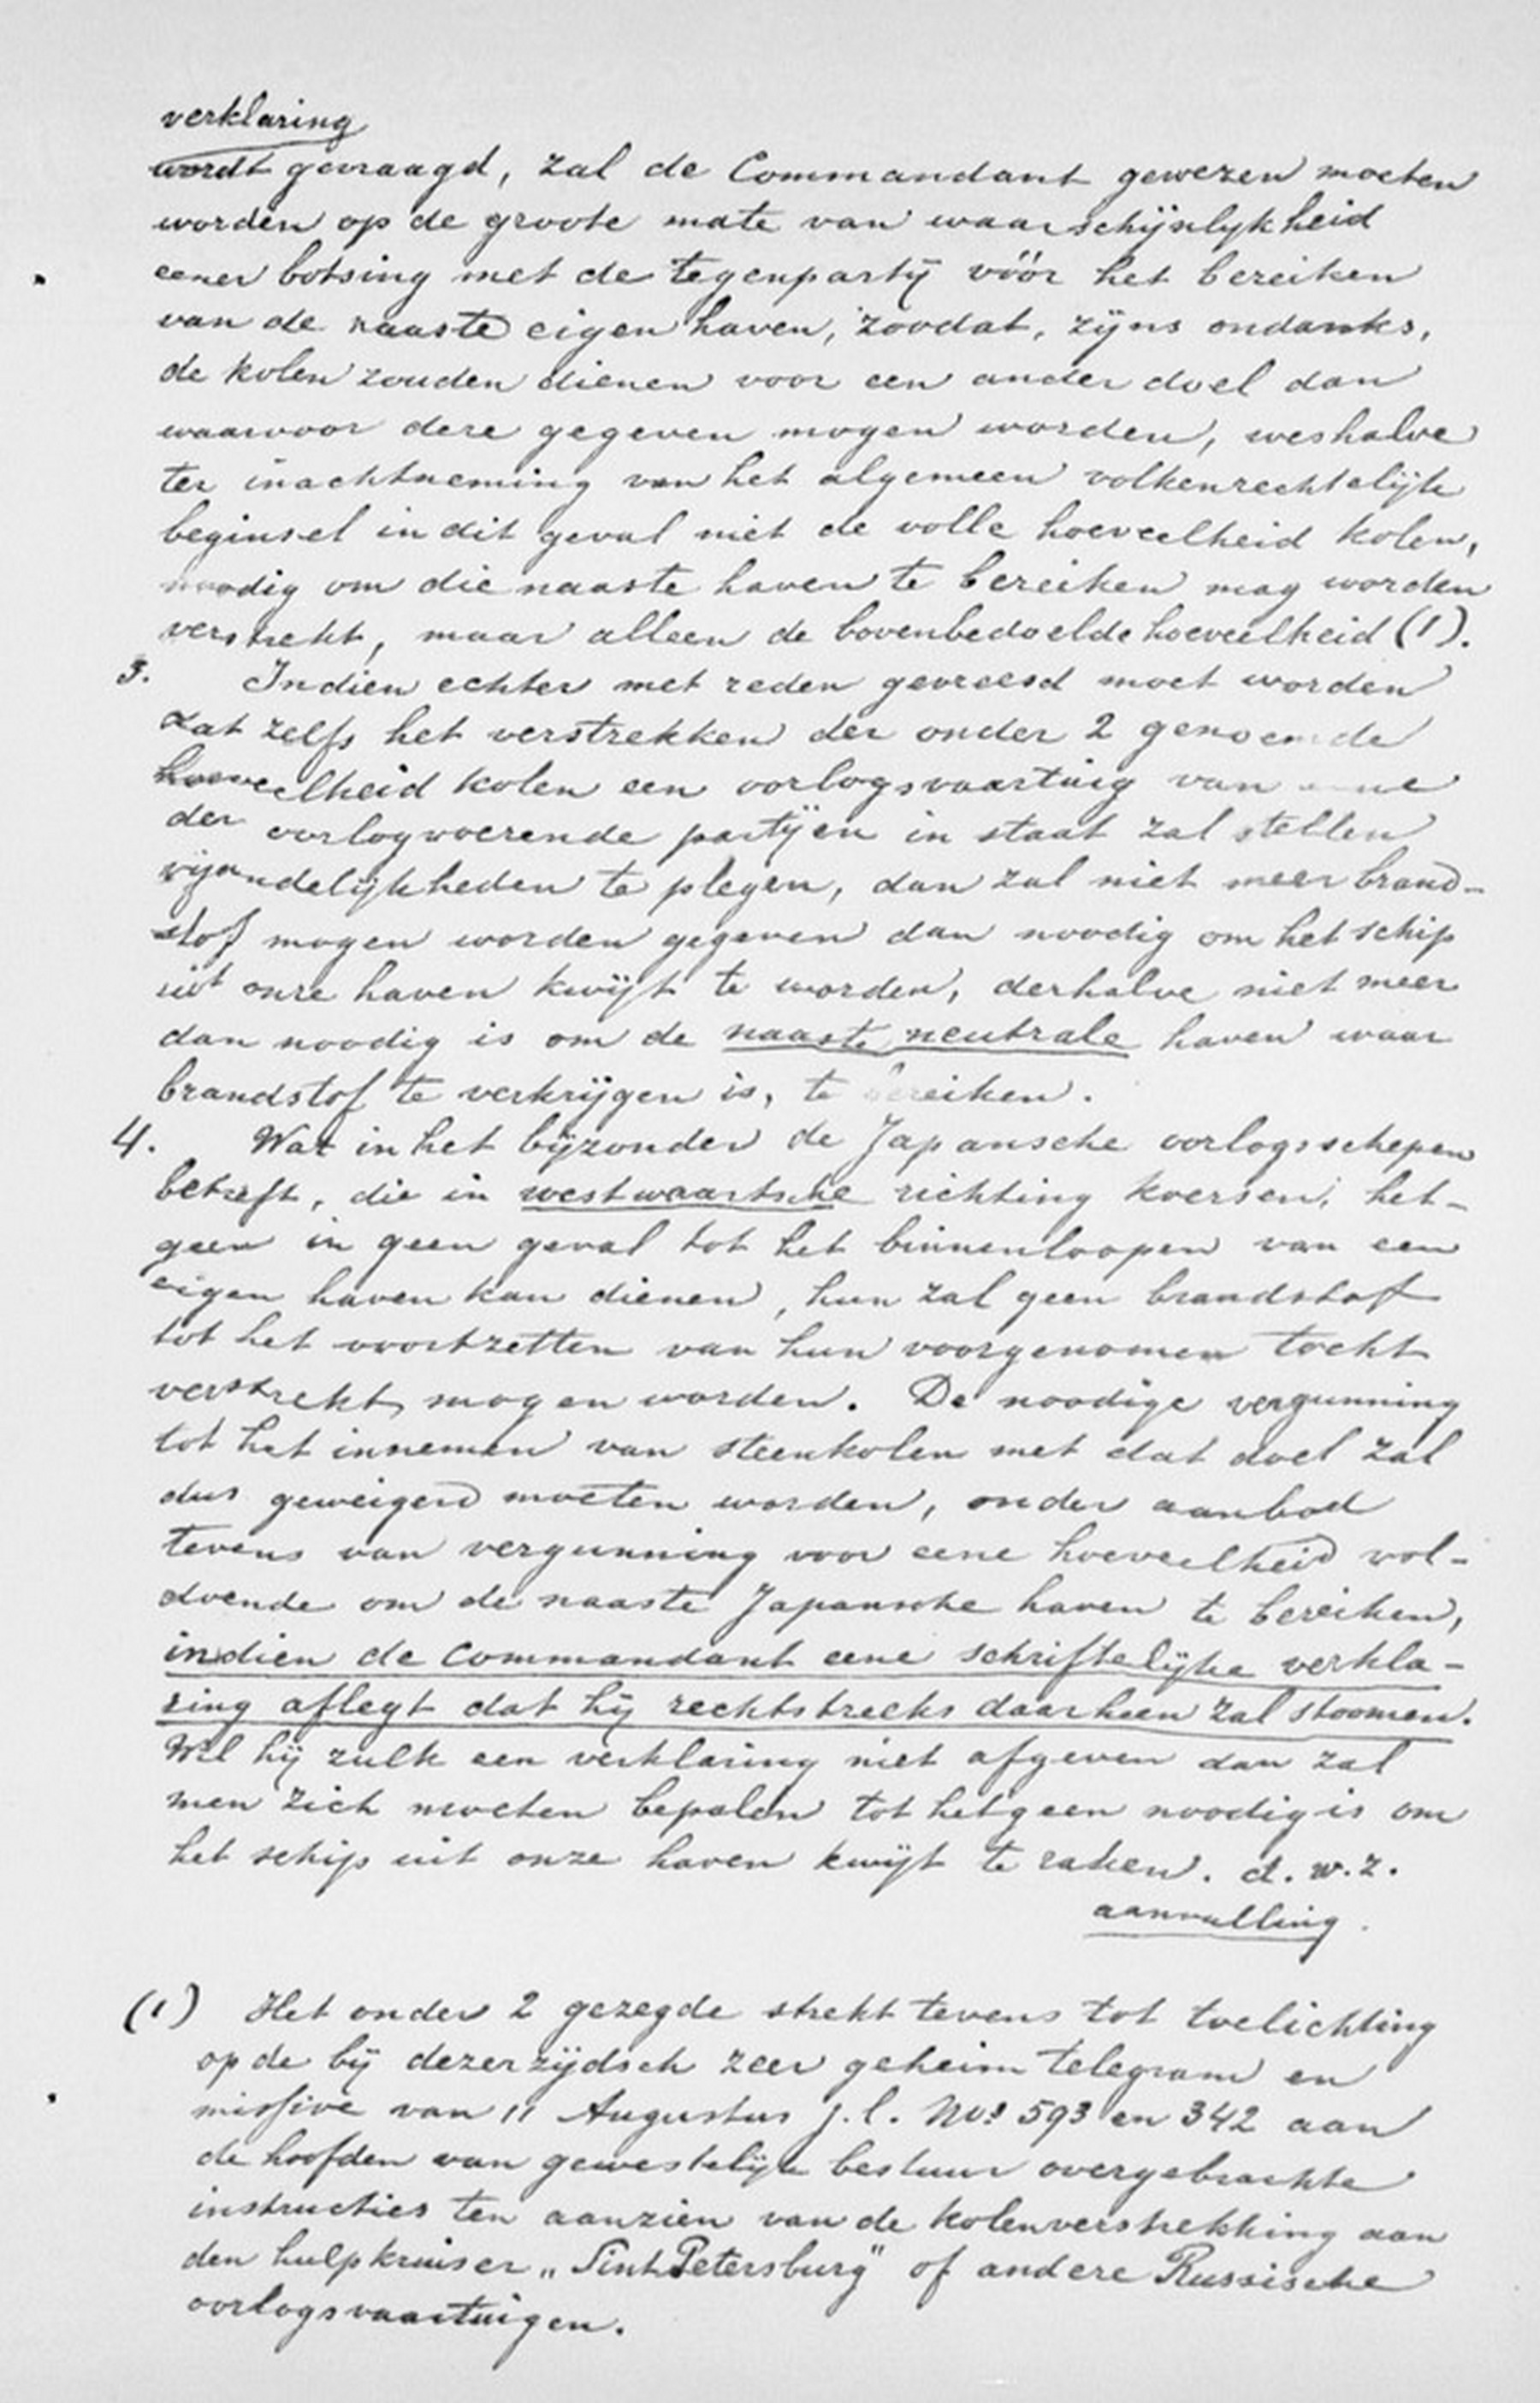 verklaring
wordt gevraagd, zal de Commandant gewezen moeten
worden op de groote mate van waarschijnlykheid
eener botsing met de tegenpartij vóór het bereiken
van de naaste eigen haven, zoodat, zijns ondanks,
de kolen zouden dienen voor een ander doel dan
waarvoor deze gegeven mogen worden, weshalve
ter inachtneming van het algemeen volkenrechtelijk
beginsel in dit geval niet de volle hoeveelheid kolen,
noodig om die naaste haven te bereiken mag worden
verstrekt, maar alleen de bovenbedoelde hoeveelheid (1).
3. Indien echter met reden gevreesd moet worden
dat zelfs het verstrekken der onder 2 genoemde
hoeveelheid kolen een oorlogsvaartuig van eene
der oorlogvoerende partijen in staat zal stellen
vijandelijkheden te plegen, dan zal niet meer brand-
stof mogen worden gegeven dan noodig om het schip
uit onze haven kwijt te worden, derhalve niet meer
dan noodig is om de naaste neutrale haven waar
brandstof te verkrijgen is, te bereiken.
4. Wat in het bijzonder de Japansche oorlogsschepen
betreft, die in westwaartsche richting koersen, het-
geen in geen geval tot het binnenloopen van een
eigen haven kan dienen, hun zal geen brandstof
tot het voortzetten van hun voorgenomen tocht
verstrekt mogen worden. De noodige vergunning
tot het innemen van steenkolen met dat doel zal
dus geweigerd moeten worden, onder aanbod
tevens van vergunning voor eene hoeveelheid vol-
doende om de naaste Japansche haven te bereiken,
indien de Commandant eene schriftelijke verkla-
ring aflegt dat hij rechtstreeks daarheen zal stoomen.
Wil hij zulk een verklaring niet afgeven dan zal
men zich moeten bepalen tot hetgeen noodig is om
het schip uit onze haven kwijt te raken. d.w.z.
aanvulling.
(1) Het onder 2 gezegde strekt tevens tot toelichting
op de bij dezerzijdsch zeer geheim telegram en
missive van 11 Augustus j.l. Nos 593 en 342 aan
de hoofden van gewestelijk bestuur overgebrachte
instructies ten aanzien van de kolenverstrekking aan
den hulpkruiser „Sint Petersburg" of andere Russische
oorlogsvaartuigen.